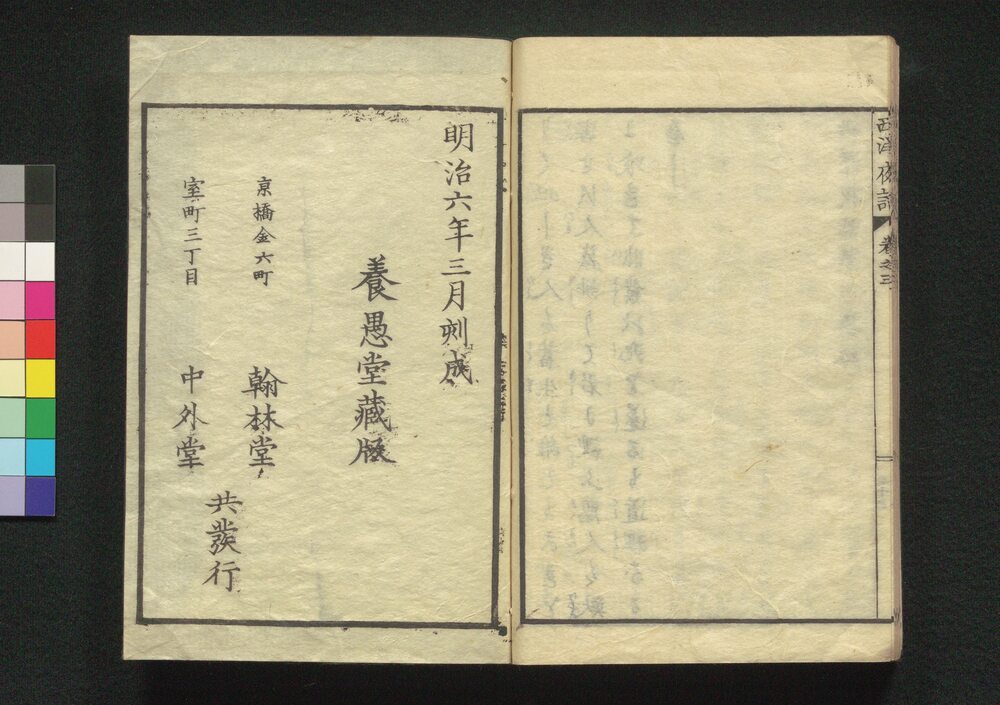 西洋夜話
卷之三
明治六年三月刻成
養愚堂藏版
京橋金六町
翰林堂
室町三丁目
中外堂
共發行